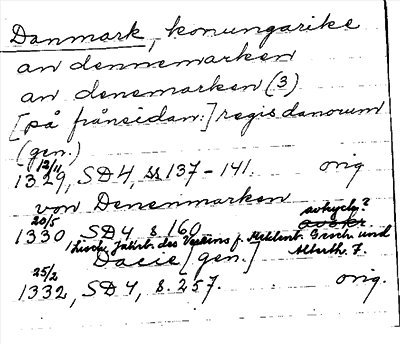 Danmark, konungarike
an dennemarken
an denemarken (3)
[på frånsidan:] regis danorum
(gen.)
12/11
1329, SD4, ss 137-141. orig
von Denenmarken
20/5
1330 SD4 s 160 avtryckn?
/Lisch, Jahrb. des Vereins f. Meklenb. Gesch. und
Dacie [gen.] Alterth. 7.
25/2
1332, SD4, s. 257. orig.